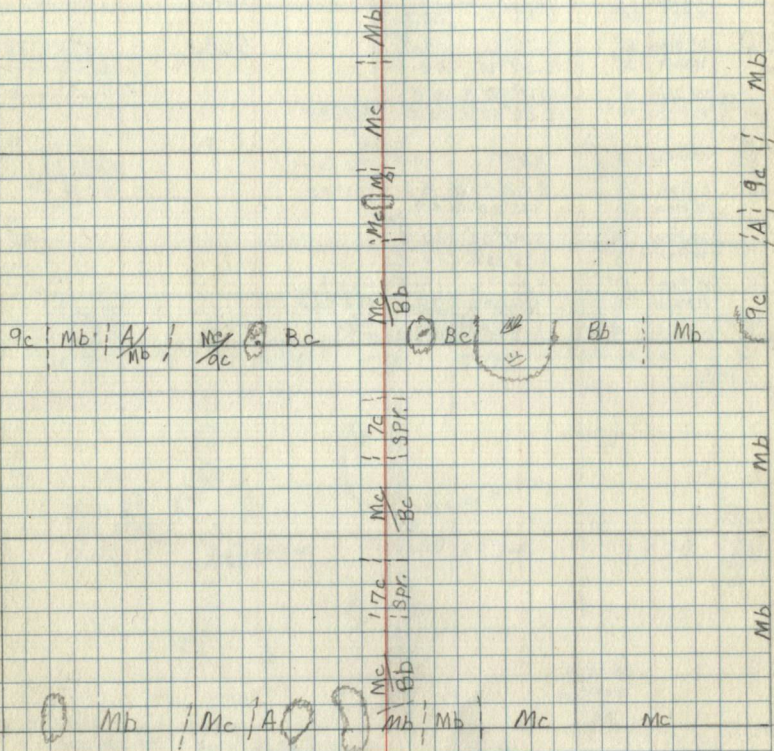 Mb
Mc
Mb
Mc
Mc/Bb
9c Mb A/Mb Mc/9c Bc
Bc Bb Mb
7c
spr.
Mc/Bc
7c
spr.
Mc/Bb
Mb Mc A Mb Mb Mc Mc
Mb
9c
A
9c
Mb
Mb